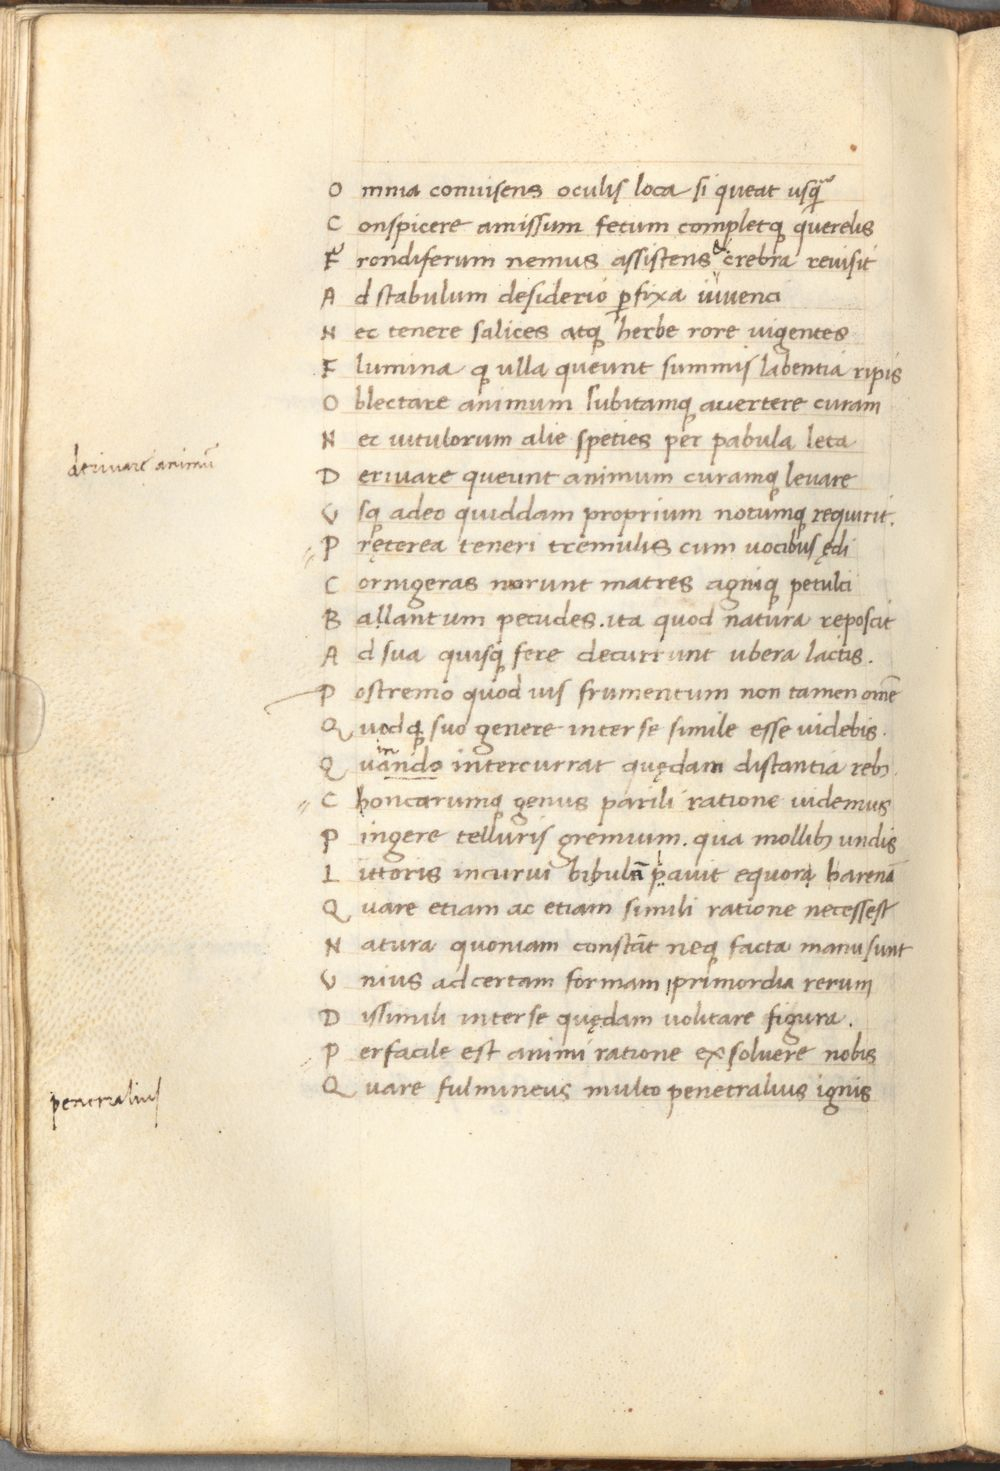 O mnia conuisens oculis loca si queat usq̃
C onspicere amissum fetum completq; querelis
F rondiferum nemus assistens & crebra reuisit
A d stabulum desiderio ꝑfixa iuuenci
N ec tenere salices atq; herbe rore uigentes
F lumina q; ulla queunt summis labentia ripis
O blectare animum subitamq; auertere curam
N ec uitulorum alie speties per pabula leta
deriuare animũ
D eriuare queunt animum curamq; leuare
V sq; adeo quiddam proprium notumq; requirit.
P ręterea teneri tremulis cum uocibus ędi
C ornigeras norunt matres agniq; petulci
B allantum pecudes. ita quod natura reposcit
A d sua quisq; fere decurrunt ubera lactis.
P ostremo quod uis frumentum non tamen om̃e
Q uodq; suo genere inter se simile esse uidebis.
Q uando in intercurrat quędam distantia rebꝫ.
C honcarumq; genus parili ratione uidemus
P ingere telluris gremium. qua mollibꝫ undis
L ittoris incurui bibulã pauit equora harenã
Q uare etiam ac etiam simili ratione necessest
N atura quoniam constãt neq; facta manu sunt
V nius ad certam formam primordia rerum
D issimili inter se quędam uolitare figura.
P erfacile est animi ratione exsoluere nobis
penetralius
Q uare fulmineus multo penetralius ignis